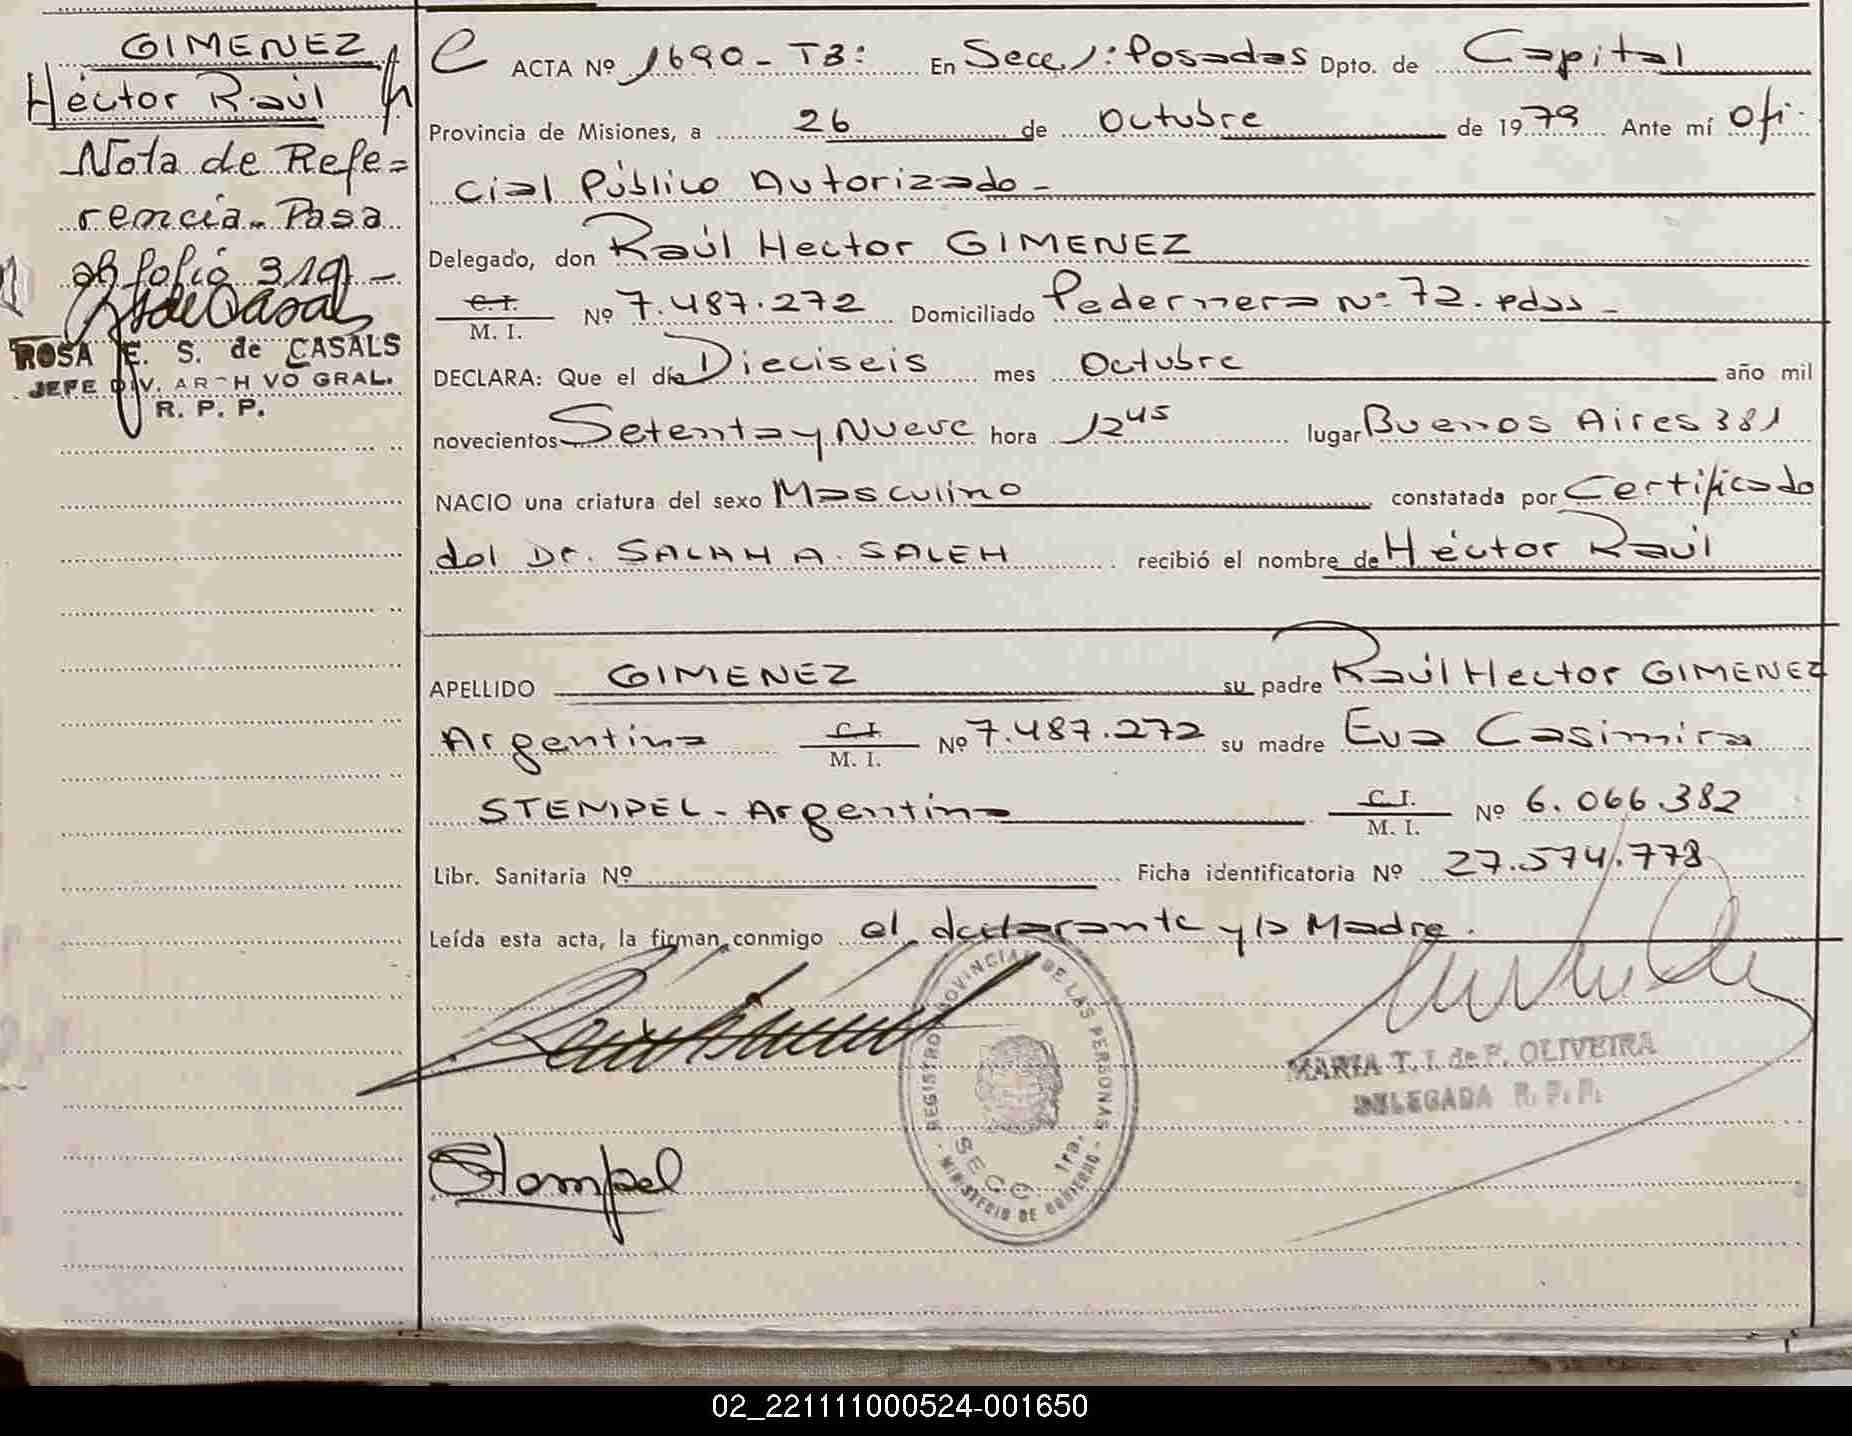 GIMENEZ
Héctor Raúl
Nota de Refe=
rencia. Pasa
al folio 319 -
ROSA E. S. de CASALS
JEFE DIV. ARCHIVO GRAL.
R. P. P.
ACTA Nº 1690 - TB: En Secc 1: Posadas Dpto. de Capital
Provincia de Misiones, a 26 de Octubre de 1979 Ante mí Ofi-
cial Público Autorizado -
Delegado, don Raúl Hector GIMENEZ
C. I. / M. I. Nº 7.487.272 Domiciliado Pedernera Nº 72. pdas -
DECLARA: Que el día Dieciseis mes Octubre año mil
novecientos Setenta y Nueve hora 12 45 lugar Buenos Aires 381
NACIO una criatura del sexo Masculino constatada por Certificado
del Dr. SALAH A. SALEH recibió el nombre de Héctor Raúl
APELLIDO GIMENEZ su padre Raúl Hector GIMENEZ
Argentina C. I. / M. I. Nº 7.487.272 su madre Eva Casimira
STEMPEL - Argentina C. I. / M. I. Nº 6.066.382
Libr. Sanitaria Nº Ficha identificatoria Nº 27.574.778
Leída esta acta, la firman conmigo el declarante y la Madre.
REGISTRO PROVINCIAL DE LAS PERSONAS
SECC. 1ra.
- MINISTERIO DE GOBIERNO -
MARIA T. I. de F. OLIVEIRA
DELEGADA R. P. P.
Stempel
02_221111000524-001650